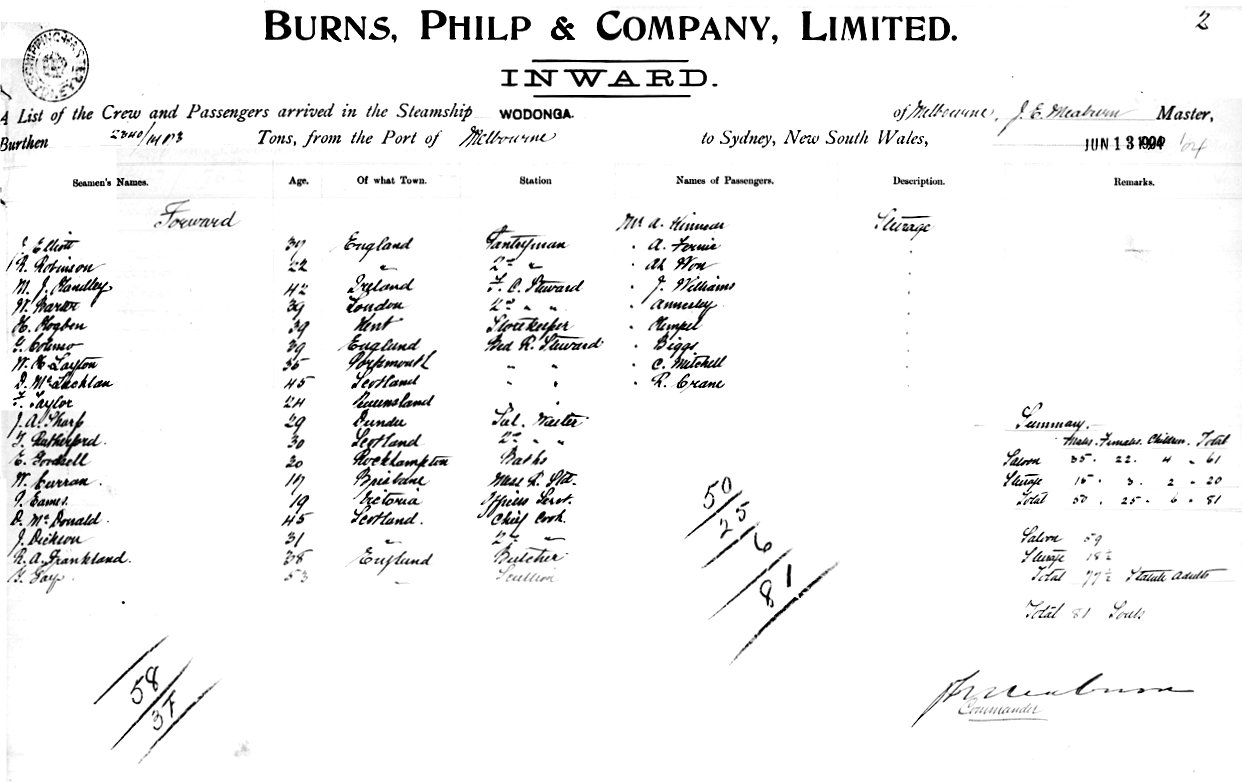 BURNS, PHILP & COMPANY, LIMITED.
2
INWARD.
A List of the Crew and Passengers arrived in the Steamship WODONGA. of Melbourne, J. E. Meaburn Master,
Burthen 2340/1403 Tons, from the Port of Melbourne to Sydney, New South Wales, JUN 13 1904
Seamen's Names. Age. Of what Town. Station Names of Passengers. Description. Remarks.
Forward Mr A. Steerage
Elliott England Pantryman " A.
R. Robinson 22 " 2nd " " Ah Won
M. J. Handley 42 Ireland F. C. Steward " J. Williams
W. 39 London 2nd " " " Annesley
H. Hogben 39 Kent Storekeeper " Kempel
39 England Bed R. Steward " Biggs
W. H. Layton 35 Portsmouth " " " C. Mitchell
D. McLachlan 45 Scotland " " " R. Crane
F. Taylor 24 Queensland
J. A. Sharp 29 Dundee Sal. Waiter
T. Rutherford. 30 Scotland 2nd " "
E. Goodsell 20 Rockhampton Baths
W. Curran. 17 Brisbane Mess R. Std.
J. Eames. 19 Victoria Officers Servt.
D. McDonald. 45 Scotland. Chief Cook
J. Dickson 31 " 2nd "
R. A. Frankland. 38 England Butcher
G. Gay. 53 " Scullion
Summary.
Males. Females. Children. Total
Saloon 35. 22. 4 " 61
Steerage 15. 3. 2 " 20
Total 50. 25. 6. 81
Saloon 59
Steerage 18½
Total 77½ Statute Adults
Total 81 Souls
50
25
6
81
58
37
J E Meaburn
Commander